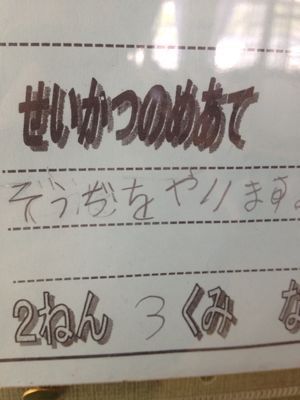 せいかつのめあて
そうぢをやります。
2ねん 3 くみ な